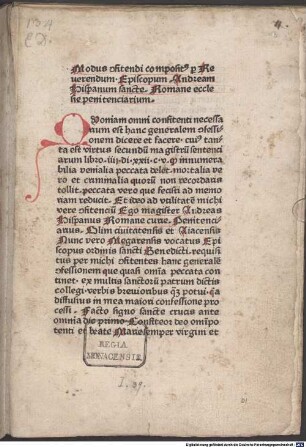 4.
·Modus ꝯfitendi compositꝰ ꝑ Re
uerendum· Episcopum· Andream
Hispanum sancte· Romane eccle
sie penitenciarium·
QVoniam omni confitenti necessa
rium est hanc generalem ꝯfessi
onem dicere et facere· cuiꝰ tan
ta est virtus secundū magistrū sentenci
arum libro·iiij·di·xxij·c·v· ꝙ innumera
bilia venialia peccata delet· mortalia ve
ro et criminalia quorū non recordaris
tollit· peccata vero que fecisti ad memo
riam reducit· Et ideo ad vtilitatē michi
vere ꝯfitenciū Ego magister Andreas
Hispanus Romane curie· Peniteñci
arius· Olim ciuitatensis et Aiacensis
Nunc vero Megarensis vocatus Epi
scopus ordinis sancti Benedicti· requisi
tus per michi ꝯfitentes hanc generalē
ꝯfessionem que quasi om̄ia peccata con
tinet· ex multis sanctorū patrum dictis
collegi· verbis breuioribus ꝙ̄ potui· q̄a
diffusius in mea maiori confessione pro
cessi· Facto signo sancte crucis ante
omnia dic primo· Confiteor deo om̄ipo
tenti et beate Marie semper virgini et
REGIA
MONACENSIS